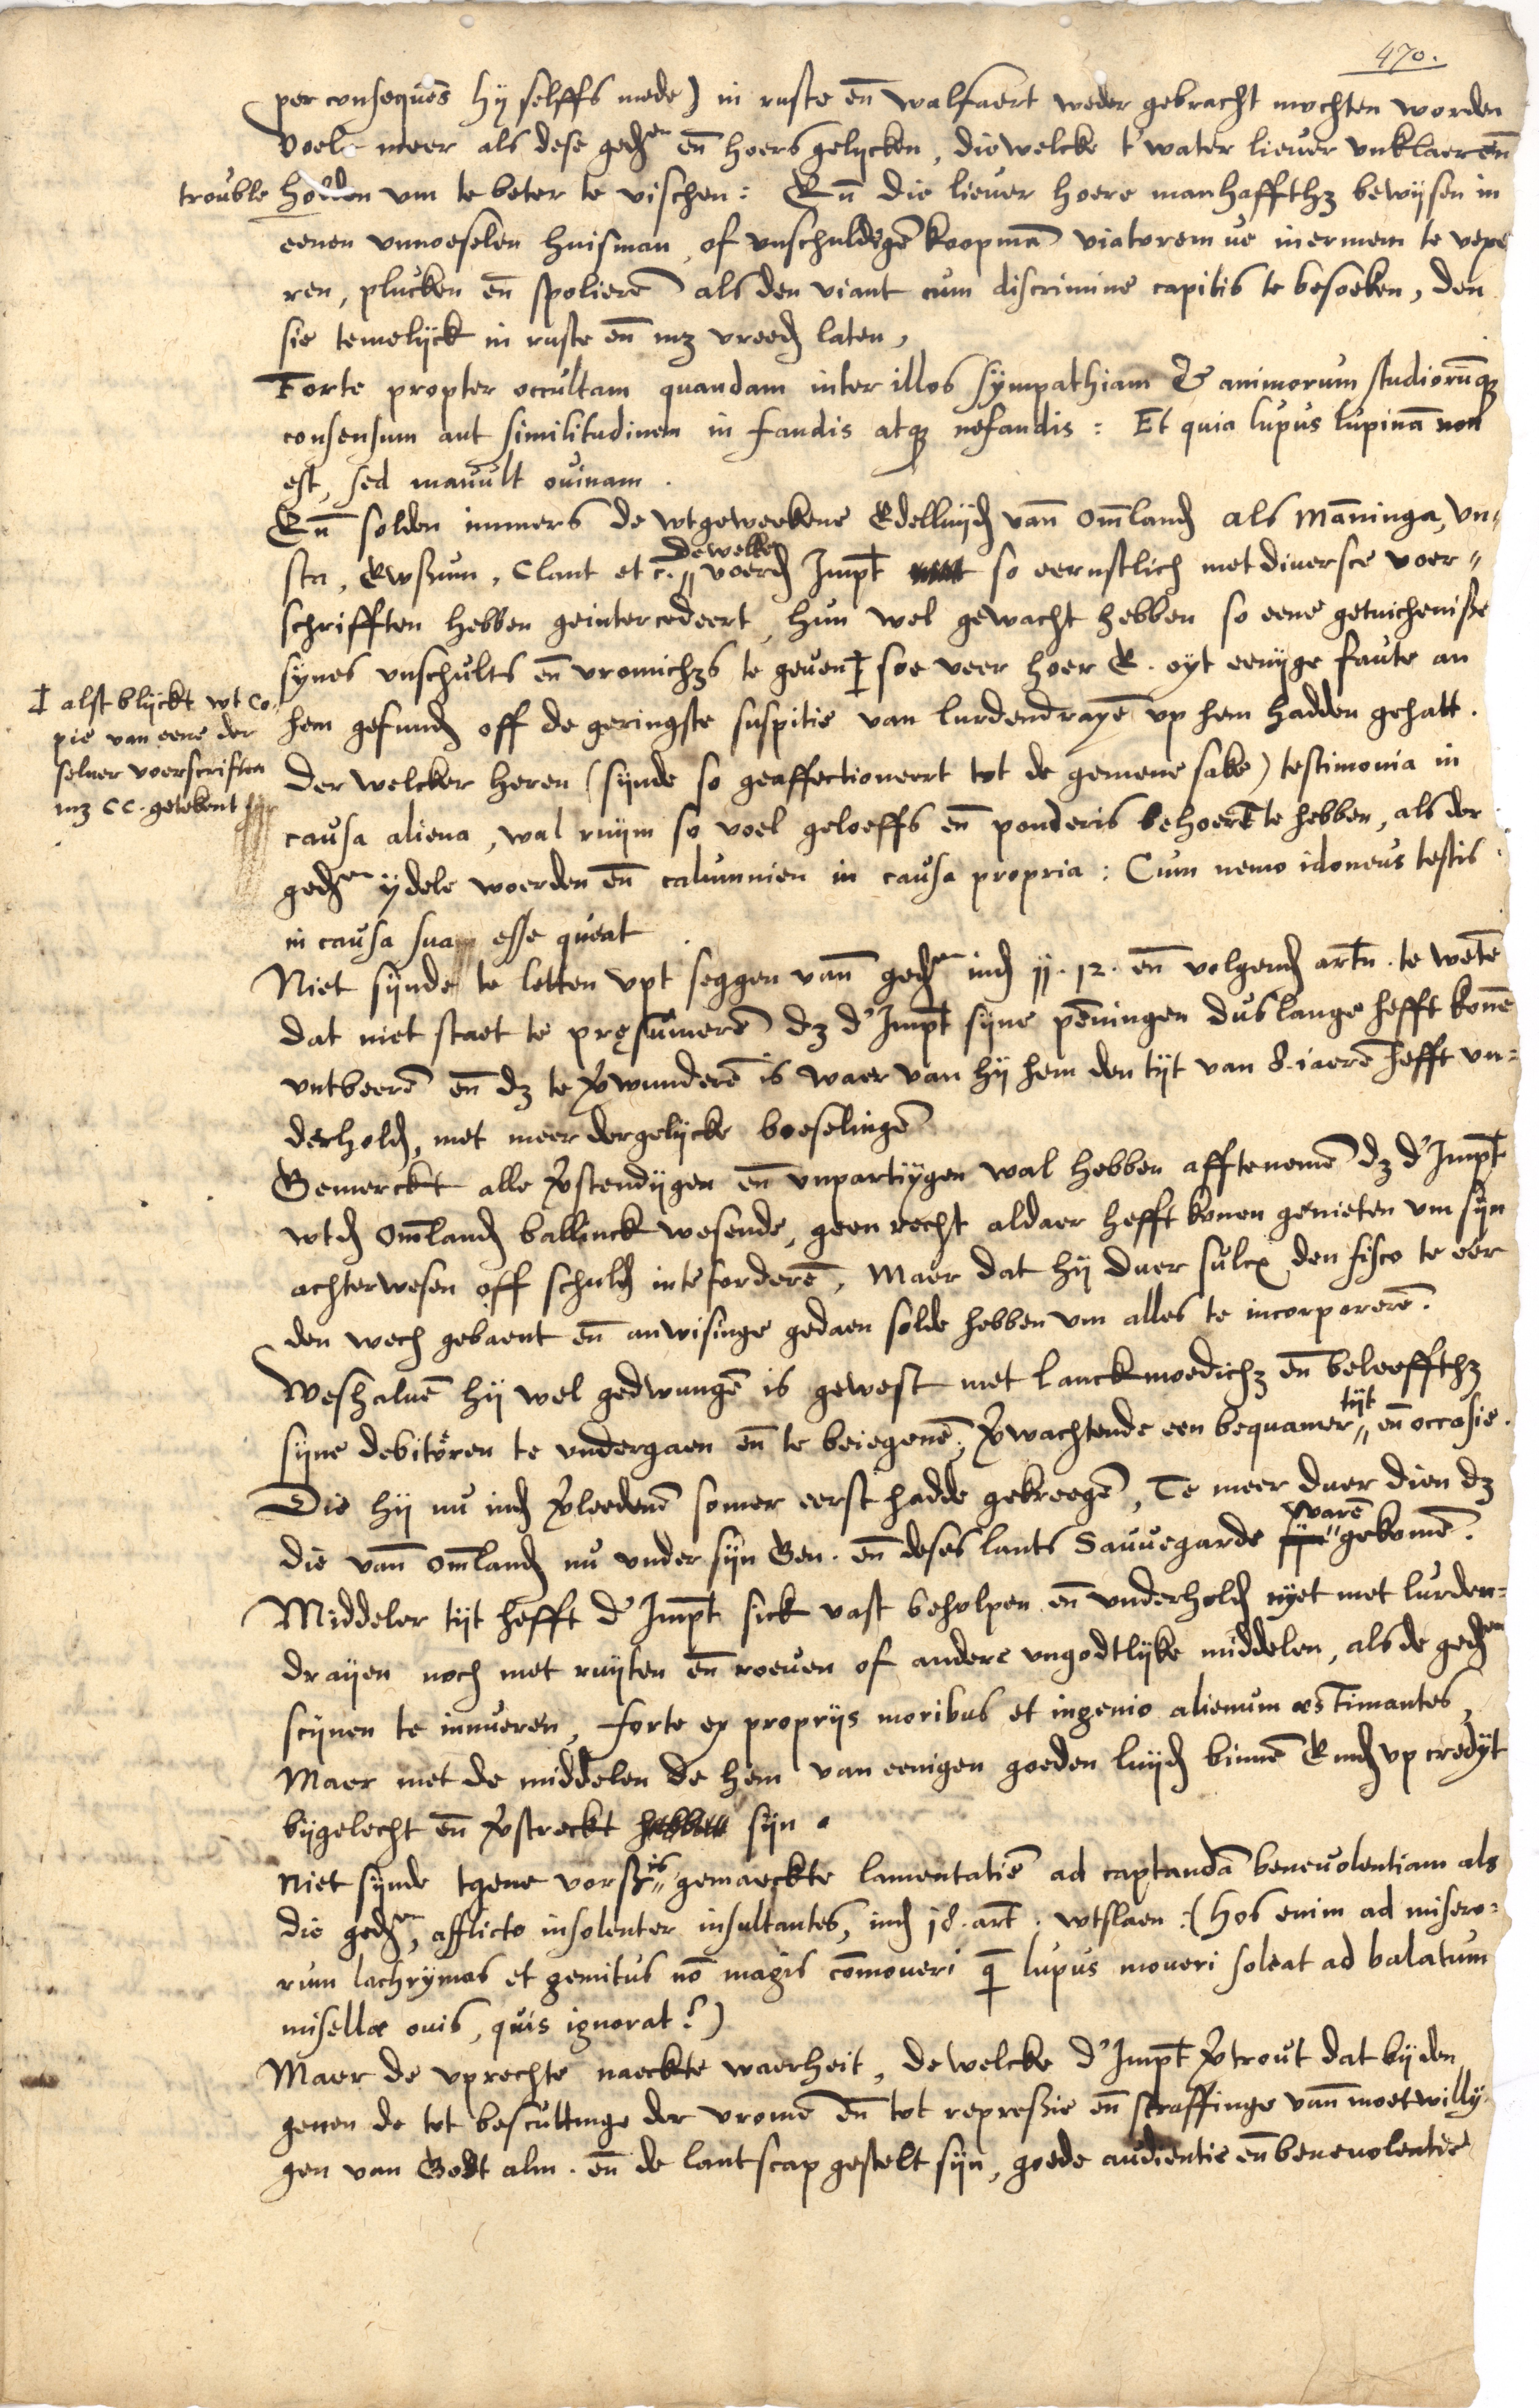 470.
per consequēs hij selffs mede) in ruste en̄ walfaert weder gebracht mochten worden
voel meer als dese gedͤn en̄ hoers gelijcken, die welcke t'water liever unklaer en̄
trouble holden um te beter te vischen: En̄ die liever hoere manhaffthz bewijsen in
eenen unnoeselen huisman, of unschuldigē koopmā viatorem ve inermem te vexe
ren, plucken en̄ spolierē als den viant cum discrimine capitis te besoeken, den
sie temelijck in ruste en̄ mz vreedh laten,
Forte propter occultam quandam inter illos sympathiam & animorum studiorūqz
consensum aut similitudinem in fandis atqz nefandis: Et quia lupus lupinā non
est, sed mavult ovinam.
En̄ solden immers de wtgeweekene Edelluijd van̄ Om̄land als Māninga, Un=
sta, Ewsum, Clant etc. dewelke voerd Impt so eernstlich met diversce voer=
schrifften hebben geintercedeert, hun wel gewacht hebben so eene getuicheniße
synes unschults en̄ vromichzs te geven ‡ soe veer hoer E. oyt eenijge faute an
‡ alst blijckt wt Co=
pie van eene der
selver voerscriften
mz CC. getekent
hem gefund off de geringste suspitie van lurdendrayē up hem hadden gehatt.
Der welcker heren (sijnde so geaffectioneert tot de gemene sake) testimonia in
causa aliena, wal ruijm so voel geloeffs en̄ ponderis behoert te hebben, als der
gedͤn ijdele woerden en̄ calumnien in causa propria: Cum nemo idoneus testis
in causa sua esse queat.
Niet sijnde te letten upt seggen van̄ gedͤn ind 11. 12. en̄ volgend artn. te wetē
dat niet staet te pręsumerē dz d'Impt sijne pēningen dus lange hefft konē
untbeerē en̄ dz te v̄wunderē is waer van hij hem den tijt van 8. iaerē hefft un=
derhold, met meer dergelijcke boeselingē
Gemerckt alle v̄stendijgen en̄ unpartijgen wal hebben afftenemē dz d'Impt
wtd Om̄land ballinck wesende, geen recht aldaer hefft konen genieten um sijn
achterwesen off schuld inteforderē, Maer dat hij duer sulcx den fisco te eer
den wech gebaent en̄ anwisinge gedaen solde hebben um alles te incorporerē.
Weshalvē hij wel gedwungē is gewest met lanckmoedichz en̄ beleeffthz
sijne debitoren te undergaen en̄ te beiegenē, v̄wachtende een bequamer tijt en̄ occasie.
Die hij nu ind v̄leedenē somer eerst hadde gekreegē, Te meer duer dien dz
die van̄ Om̄land nu under sijn Gen. en̄ deses lants Sauvegarde warē gekomē.
Middeler tijt hefft d'Impt sick vast beholpen en̄ underhold nyet met lurden=
drayen noch met ruyten en̄ roeven of andere ungodtlyke middelen, als de gedͤn
scijnen te innueren, forte ex proprijs moribus et ingenio alienum æstimantes,
Maer met de middelen de hem van eenigen goeden luijd binnē Emd up credijt
bijgelecht en̄ v̄streckt hebben sijn.
Niet sijnde tgene vorß. is gemaeckte lamentatiē ad captandā benevolentiam als
die gedͤn, afflicto insolenter insultantes, ind 18. art. wtslaen: (Hos enim ad misero=
rum lachrymas et gemitus nō magis cōmoveri q̄ lupus moveri soleat ad balatum
misellæ ovis, quis ignorat?)
Maer de uprechte naeckte waerheit, dewelcke d'Impt v̄trout dat bij den
genen de tot bescuttinge der vromē en̄ tot repreßie en̄ straffinge van̄ moetwillij=
gen van Godt alm. en̄ de lantscap gestelt sijn, goede audientie en̄ benevolentie